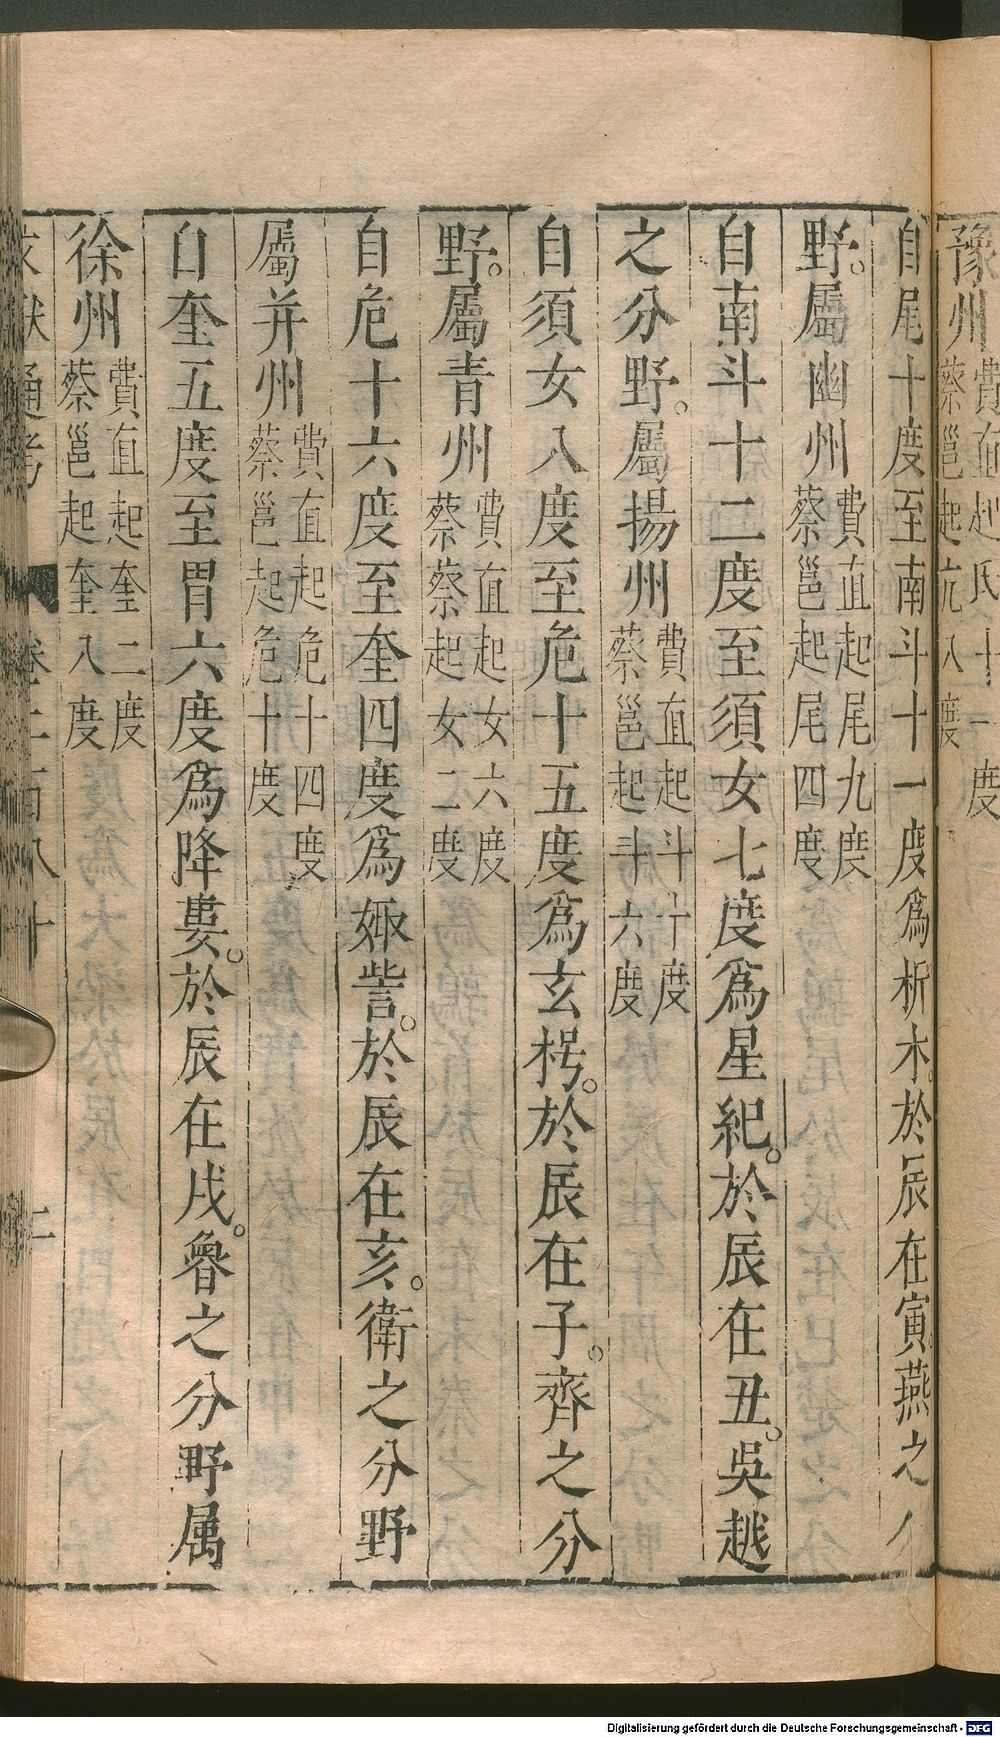 豫州費直起氐十一度
蔡邕起亢八度
自尾十度至南斗十一度爲析木於辰在寅燕之分
野屬幽州費直起尾九度
蔡邕起尾四度
自南斗十二度至須女七度爲星紀於辰在丑吳越
之分野屬揚州費直起斗十度
蔡邕起斗六度
自須女八度至危十五度爲玄枵於辰在子齊之分
野屬青州費直起女六度
蔡蔡起女二度
自危十六度至奎四度爲娵訾於辰在亥衛之分野
屬并州費直起危十四度
蔡邕起危十度
自奎五度至胃六度爲降婁於辰在戌魯之分野属
徐州費直起奎二度
蔡邕起奎八度
文獻通考 卷二百八十 二
Digitalisierung gefördert durch die Deutsche Forschungsgemeinschaft - DFG